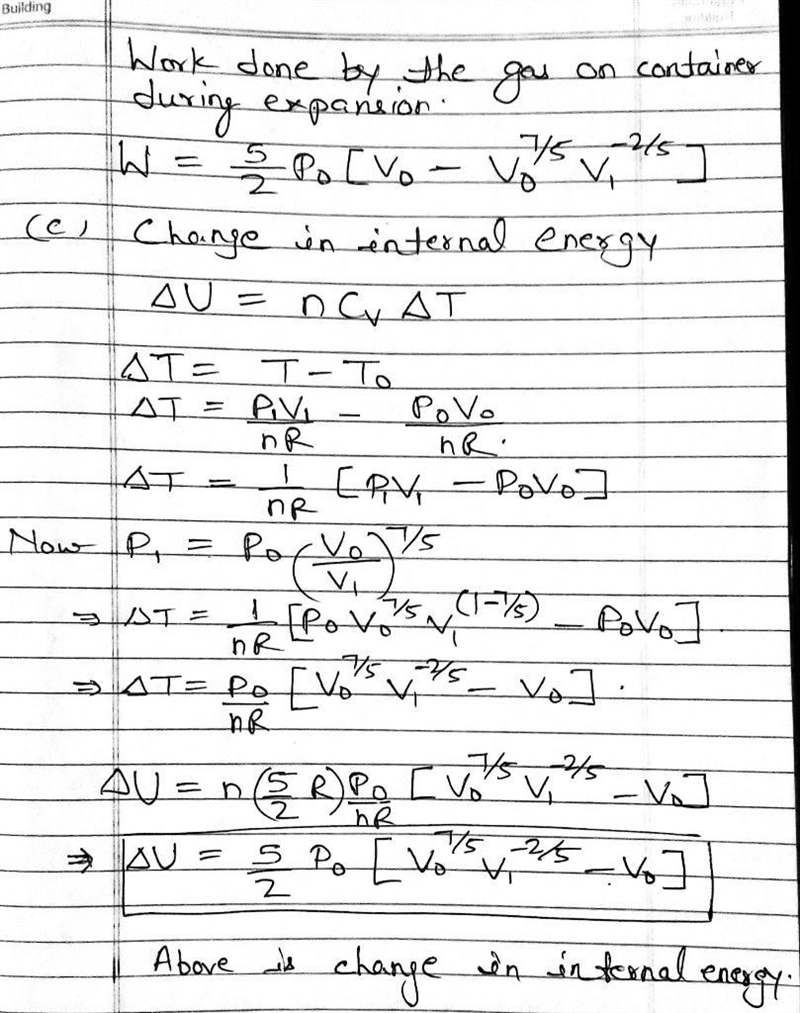 Building
Work done by the gas on container
during expansion.
W = 5/2 P₀ [V₀ − V₀^(7/5) V₁^(-2/5)]
(c) Change in internal energy
ΔU = n Cv ΔT
ΔT = T − T₀
ΔT = P₁V₁/nR − P₀V₀/nR.
ΔT = 1/nR [P₁V₁ − P₀V₀]
Now P₁ = P₀ (V₀/V₁)^(7/5)
⇒ ΔT = 1/nR [P₀ V₀^(7/5) V₁^(1−7/5) − P₀V₀].
⇒ ΔT = P₀/nR [V₀^(7/5) V₁^(-2/5) − V₀].
ΔU = n (5/2 R) P₀/nR [V₀^(7/5) V₁^(-2/5) − V₀]
⇒ ΔU = 5/2 P₀ [V₀^(7/5) V₁^(-2/5) − V₀]
Above is change in internal energy.